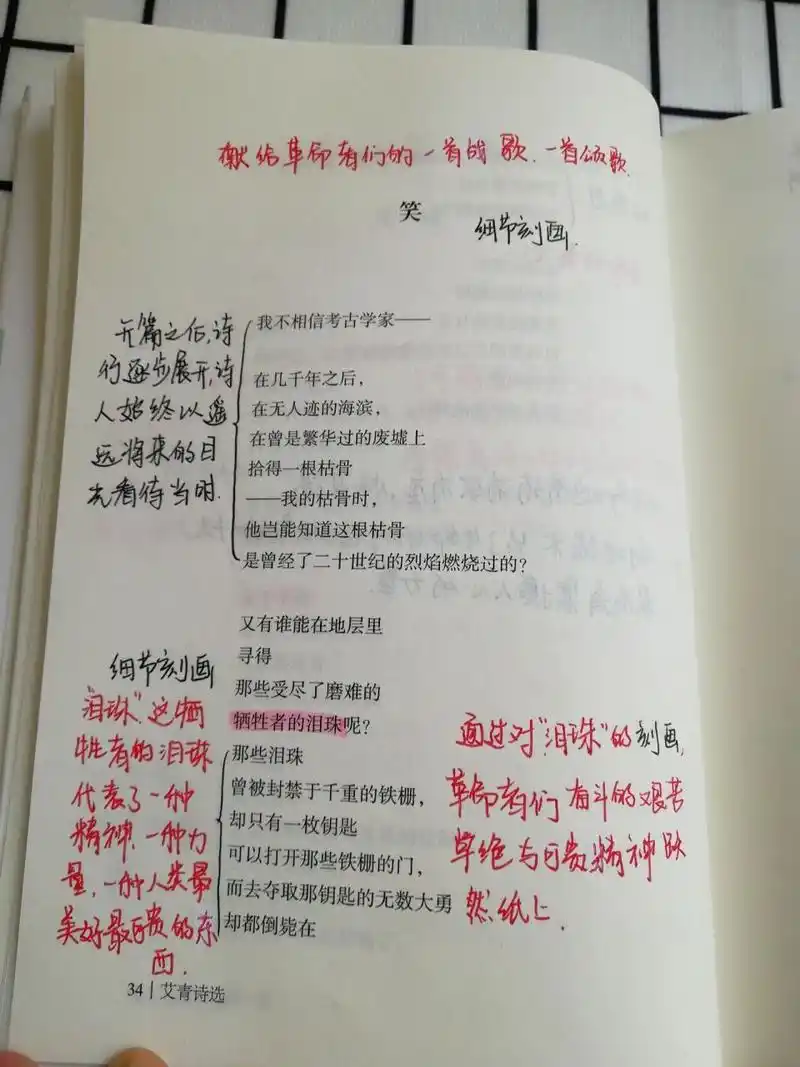 献给革命者们的一首战歌、一首颂歌.
笑
细节刻画.
开篇之后,诗
行逐步展开,诗
人始终以遥
远将来的目
光看待当时.
我不相信考古学家——
在几千年之后,
在无人迹的海滨,
在曾是繁华过的废墟上
拾得一根枯骨
——我的枯骨时,
他岂能知道这根枯骨
是曾经了二十世纪的烈焰燃烧过的?
又有谁能在地层里
寻得
那些受尽了磨难的
牺牲者的泪珠呢?
那些泪珠
曾被封禁于千重的铁栅,
却只有一枚钥匙
可以打开那些铁栅的门,
而去夺取那钥匙的无数大勇
却都倒毙在
细节刻画
"泪珠",这牺
牲者的泪珠
代表了一种
精神、一种力
量,一种人类最
美好最可贵的东
西.
通过对"泪珠"的刻画,
革命者们奋斗的艰苦
卓绝与可贵精神跃
然纸上.
34 | 艾青诗选